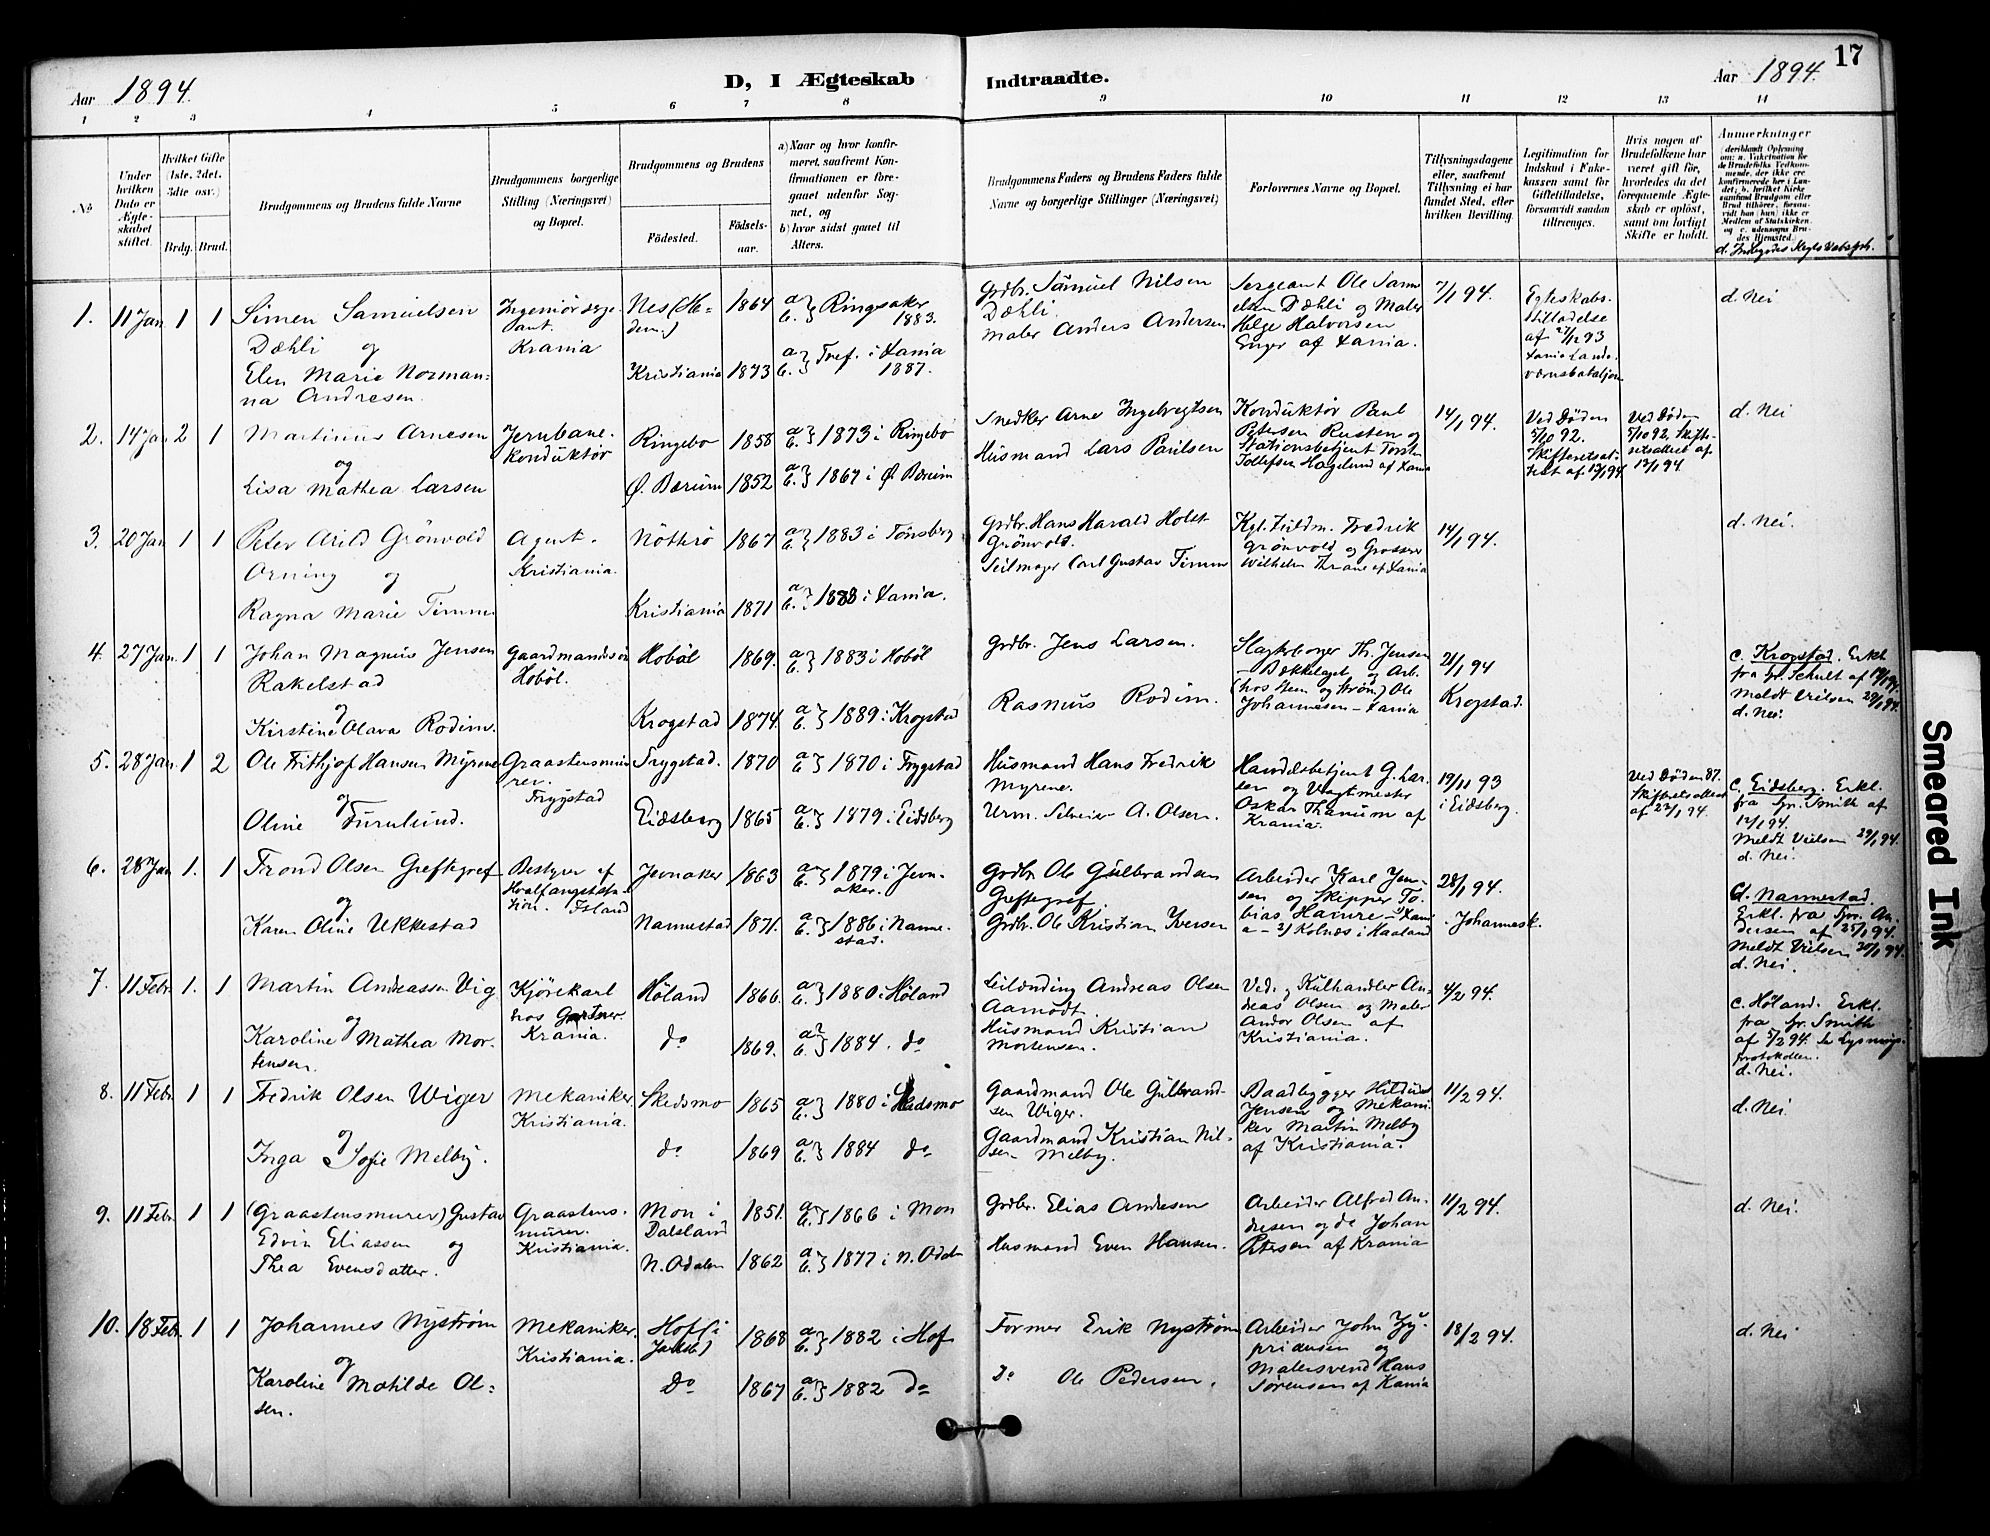 17
Aar 1894.
D, I Ægteskab Indtraadte.
Aar 1894.
1 2 3 4 5 6 7 8 9 10 11 12 13 14
No
Under hvilken Dato er Ægteskabet stiftet.
Hvilket Gifte (1ste, 2det, 3die osv.)
Brdg. Brud.
Brudgommens og Brudens fulde Navne
Brudgommens borgerlige Stilling (Næringsvei) og Bopæl.
Brudgommens og Brudens
Fødested.
Fødselsaar.
a) Naar og hvor konfirmeret, saafremt Konfirmationen er foregaaet udenfor Sognet, og
b) hvor sidst gaaet til Alters.
Brudgommens Faders og Brudens Faders fulde Navne og borgerlige Stillinger (Næringsvei)
Forlovernes Navne og Bopæl.
Tillysningsdagene eller, saafremt Tillysning ei har fundet Sted, efter hvilken Bevilling.
Legitimation for Indskud i Enkekassen samt for Giftetilladelse, forsaavidt saadan tiltrænges.
Hvis nogen af Brudefolkene har været gift før, hvorledes da det foregaaende Ægteskab er opløst, samt om lovligt Skifte er holdt.
Anmerkninger
(deriblandt Oplysning om: a. Vakcination for de Brudefolks Vedkommende, der ikke ere konfirmerede her i Landet; b. hvilket Kirkesamfund Brudgom eller Brud tilhører, forsaavidt han (hun) ikke er Medlem af Statskirken, og c. udensogns Brudes Hjemsted.)
1. 11 Jan 1 1
Simen Samuelsen
Dæhli og
Elen Marie Norman=
na Andresen.
Ingeniørserge
sant.
Krania
Nes (He=
dem.) 1864
Kristiania 1873
a b } Ringsaker
1883.
a b } Tref. i Xania
1887.
Grdbr. Samuel Nilsen
Dæhli.
Maler Anders Andersen
Sergeant Ole Sam
elsen Dæhli og Maler
Helge Halvorsen
Enger af Xania.
7/1 94.
Egteskabs.
tilladelse
af 27/12 93
Xania Land-
værnsbataljon
d. Nei
2. 14 Jan 2 1
Martinus Arnesen
og
Lisa Mathea Larsen
Jernbane-
konduktør
Ringebo 1858
Ø. Bærum 1852
a b } 1873 i Ringebo
a b } 1867 i Ø. Bærum
Snedker Arne Ingebregtsen
Husmand Lars Paulsen
Konduktør Paul
Petersen Rusten og
Stationsbetjent Torsten
Tollefsen Hagelund af Xania
14/1 94.
Ved Døden
5/10 92.
Skifteretsat-
test af 12/1 94
Ved Døden
5/10 92. Skifte-
retsattest af
12/1 94.
d. Nei
3. 20 Jan 1 1
Peter Arild Grönvold
Orning og
Ragna Marie Timm
Agent.
Kristiania.
Nötterö 1867
Kristiania 1871
a b } 1883 i Tönsberg
a b } 1888 i Xania.
Grdbr. Hans Harald Holst
Grönvold.
Seilmager Carl Gustav Timm
Kgl. Fuldm. Fredrik
Grönvold og Grosser
Wilhelm Thrane af Xania
14/1 94.
d. Nei.
4. 27 Jan. 1 1
Johan Magnus Jensen
Rakelstad
og
Kirstine Olava Rodim.
Gaardmandssön
Hobøl.
Hobøl 1869.
Krogstad 1874.
a b } 1883 i Hobøl
a b } 1889 i Krogstad
Grdbr. Jens Larsen.
Rasmus Rodim.
Slagterborger Th. Jensen
- Bækkelaget og Arb.
(hos Steen og Strøm) Ole
Johannesen - Xania
21/1 94
Krogstad.
c. Krogstad. Erkl.
fra Spr. Schult af 19/1 94.
Meldt Vielsen 29/1 94.
d. Nei.
5. 28 Jan. 1 2
Ole Frithjof Hansen Myrene
og
Oline Furulund.
Graastensmu
rer.
Trygstad
Trygstad. 1870
Eidsberg 1865
a b } 1870 i Trygstad
a b } 1879 i Eidsberg
Husmand Hans Fredrik
Myrene.
Urm. Selveier A. Olsen.
Handelsbetjent G. Lar
sen og Vagtmester
Oskar Thanum af
Krania.
19/11 93
i Eidsberg.
Ved Døden 87.
Skifteretsattest
af 22/1 94.
c. Eidsberg. Erkl.
fra Spr. Smith af
12/1 94.
Meldt Vielsen 29/1 94.
d. Nei.
6. 28 Jan 1. 1
Trond Olsen Greftegref
og
Karen Oline Ukkestad
Bestyrer af
Hvalfangststa-
tion. Island
Jevnaker 1863
Nannestad 1871.
a b } 1879 i Jevn-
aker.
a b } 1886 i Nanne-
stad.
Grdbr. Ole Gulbrandsen
Greftegref.
Grdbr. Ole Kristian Iversen
Arbeider Karl Jen-
sen og Skipper To-
bias Hamre - 1) Xani
a - 2) Kolnæs i Haaland
28/1 94.
- Johannesk.
d. Nannestad.
Erkl. fra Spr. An-
dersen af 25/1 94.
Meldt Vielsen 30/1 94.
d. Nei.
7. 11 Febr. 1. 1
Martin Andreassen Vig
og
Karoline Mathea Mor-
tensen.
Kjörekarl
hos Gartner
Krania.
Høland 1866.
do 1869.
a b } 1880 i Høland
a b } 1884. do
Leilænding Andreas Olsen
Aamodt.
Husmand Kristian
Mortensen.
Ved- og Kulhandler An-
dreas Olsen og Maler
Andor Olsen af
Kristiania.
4/2 94.
c. Høland. Erkl.
fra Spr. Smith
af 5/2 94. Se Lysnings-
protokollen.
d. Nei.
8. 11 Febr. 1 1
Fredrik Olsen Wiger
og
Inga Sofie Melby.
Mekaniker
Kristiania.
Skedsmo 1865
do 1869
a b } 1880 i Skedsmo
a b } 1884 do
Gaardmand Ole Gulbrand-
sen Wiger.
Gaardmand Kristian Nil-
sen Melby.
Baadbygger Hildus
Jensen og Mekani
ker Martin Melby
af Kristiania.
11/2 94.
d. Nei.
9. 11 Febr. 1 1
(Graastensmurer) Gustav
Edvin Eliassen og
Thea Evensdatter.
Graastens-
murer.
Kristiania.
Mon i
Dalsland 1851.
N. Odalen 1862
a b } 1866 i Mon
a b } 1877 i N. Odal
Grdbr. Elias Andresen
Husmand Even Hansen.
Arbeider Alfred An-
dresen og do Johan
Petersen af Krania
11/2 94.
d. Nei.
10. 18 Febr. 1 1
Johannes Nyström
og
Karoline Matilde Ol=
sen.
Mekaniker.
Kristiania.
Hof (i
Jarlsb.) 1868
Do 1867
a b } 1882 i Hof
a b } 1882 do
Former Erik Nyström
Do Ole Pedersen.
Arbeider John Zy-
priansen og
Malersvend Hans
Sørensen af Kania
18/2 94.
d. Nei
Smeared Ink